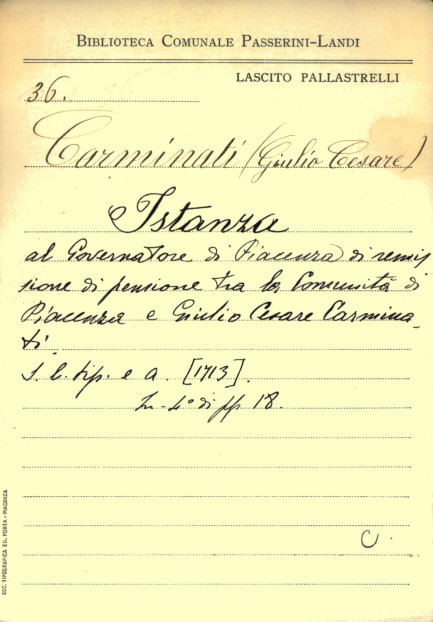 BIBLIOTECA COMUNALE PASSERINI-LANDI
LASCITO PALLASTRELLI
36.
Carminati (Giulio Cesare)
Istanza
al Governatore di Piacenza di remis
sione di pensione tra la Comunità di
Piacenza e Giulio Cesare Carmina-
ti.
S. l. tip. e a. [1713].
In-4° di pp 18.
C.
SOC. TIPOGRAFICA ED. PORTA - PIACENZA